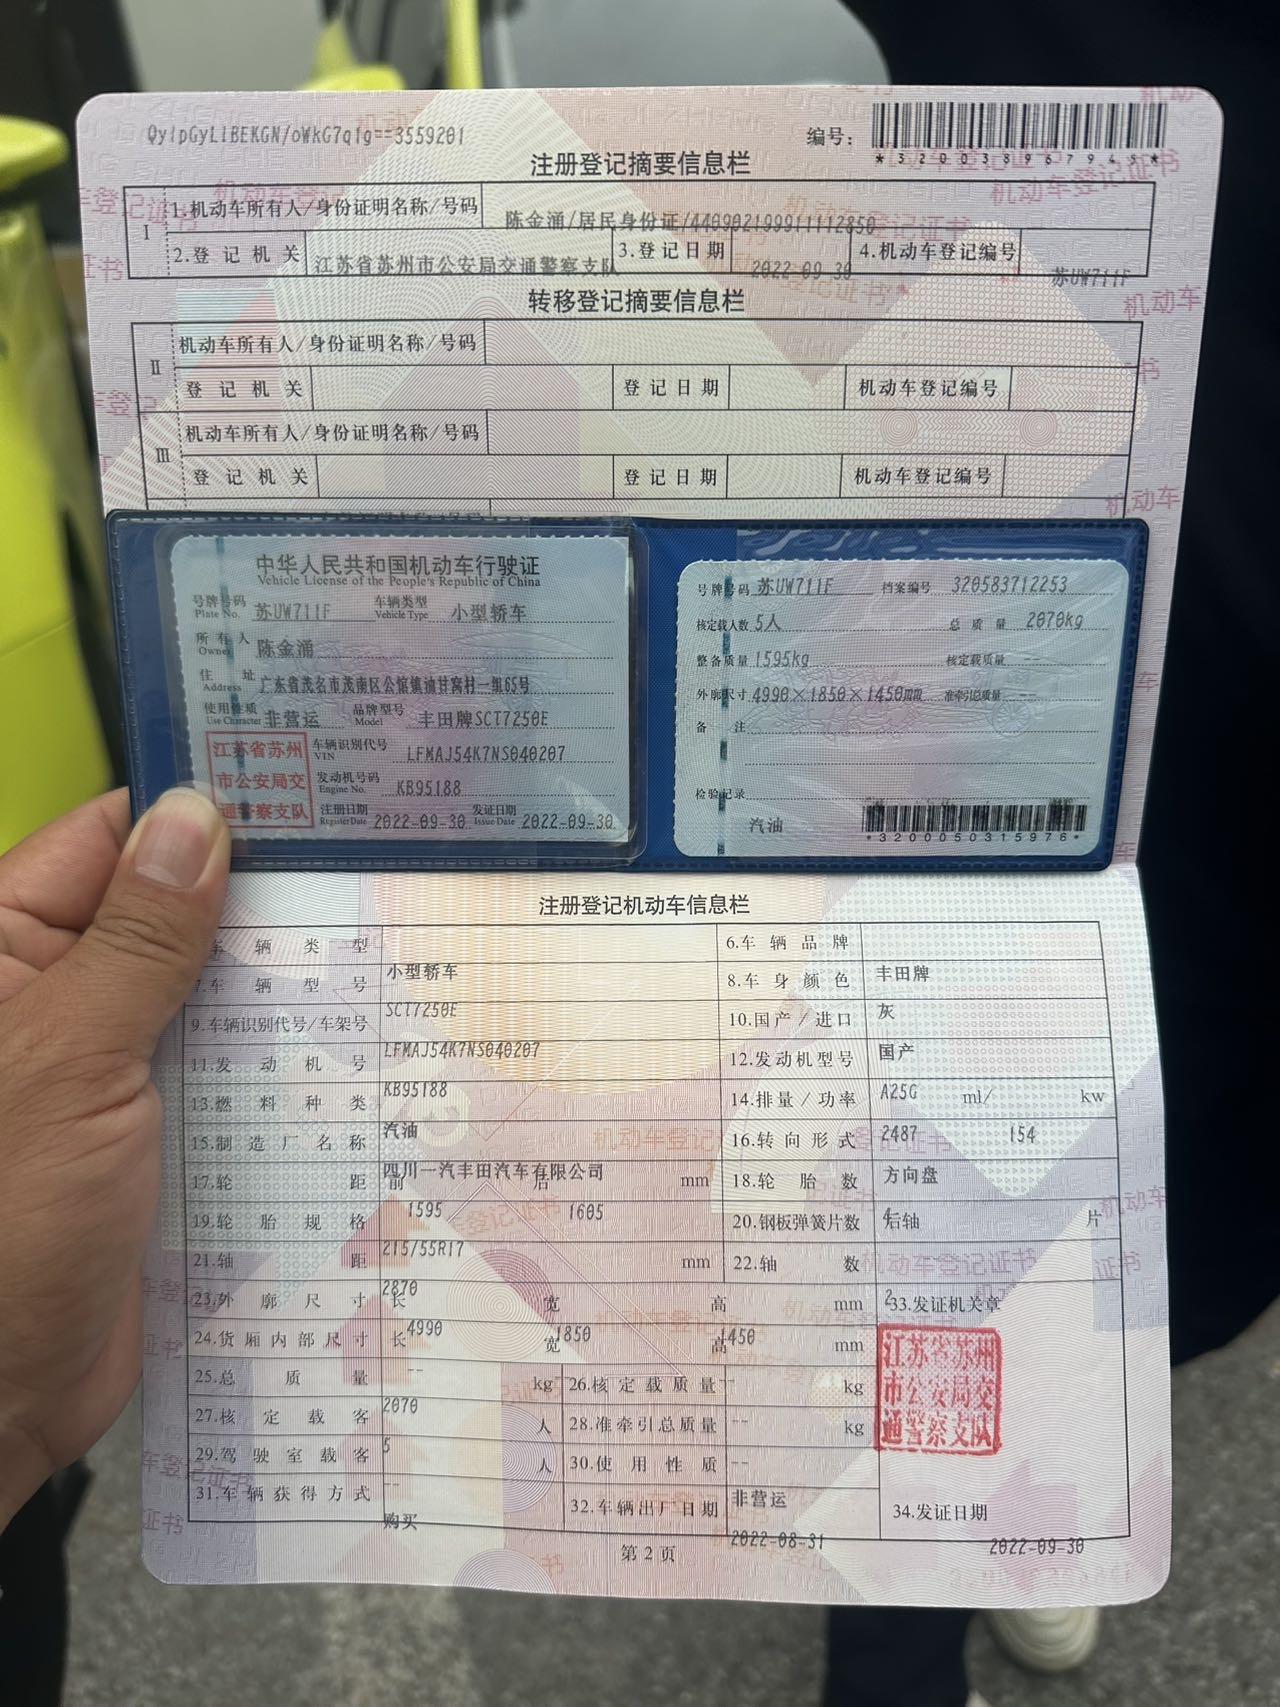 QylpGyLlBEKGN/oWkG7qlg==3559201
编号：
*320038967945*
注册登记摘要信息栏
I
1.机动车所有人/身份证明名称/号码 陈金涌/居民身份证/440902199911112850
2.登记机关 江苏省苏州市公安局交通警察支队 3.登记日期 2022-09-30 4.机动车登记编号 苏UW711F
转移登记摘要信息栏
II
机动车所有人/身份证明名称/号码
登记机关 登记日期 机动车登记编号
III
机动车所有人/身份证明名称/号码
登记机关 登记日期 机动车登记编号
中华人民共和国机动车行驶证
Vehicle License of the People's Republic of China
号牌号码 苏UW711F 车辆类型 小型轿车
Plate No. Vehicle Type
所有人 陈金涌
Owner
住址 广东省茂名市茂南区公馆镇油甘窝村一组65号
Address
使用性质 非营运 品牌型号 丰田牌SCT7250E
Use Character Model
江苏省苏州
市公安局交
通警察支队
车辆识别代号 LFMAJ54K7NS040207
VIN
发动机号码 KB95188
Engine No.
注册日期 2022-09-30 发证日期 2022-09-30
Register Date Issue Date
号牌号码 苏UW711F 档案编号 320583712253
核定载人数 5人 总质量 2070kg
整备质量 1595kg 核定载质量 --
外廓尺寸 4990×1850×1450mm 准牵引总质量 --
备注
检验记录
汽油
*3200050315976*
注册登记机动车信息栏
车辆类型 小型轿车 6.车辆品牌 丰田牌
7.车辆型号 SCT7250E 8.车身颜色 灰
9.车辆识别代号/车架号 LFMAJ54K7NS040207 10.国产/进口 国产
11.发动机号 KB95188 12.发动机型号 A25G
13.燃料种类 汽油 14.排量/功率 2487 ml/ 154 kw
15.制造厂名称 四川一汽丰田汽车有限公司 16.转向形式 方向盘
17.轮距 前 1595 后 1605 mm 18.轮胎数 4
19.轮胎规格 215/55R17 20.钢板弹簧片数 后轴 片
21.轴距 2870 mm 22.轴数 2
23.外廓尺寸 长 4990 宽 1850 高 1450 mm 33.发证机关章
24.货厢内部尺寸 长 -- 宽 高 mm
江苏省苏州
市公安局交
通警察支队
25.总质量 2070 kg 26.核定载质量 -- kg
27.核定载客 5 人 28.准牵引总质量 -- kg
29.驾驶室载客 -- 人 30.使用性质 非营运
31.车辆获得方式 购买 32.车辆出厂日期 2022-08-31 34.发证日期 2022-09-30
第2页